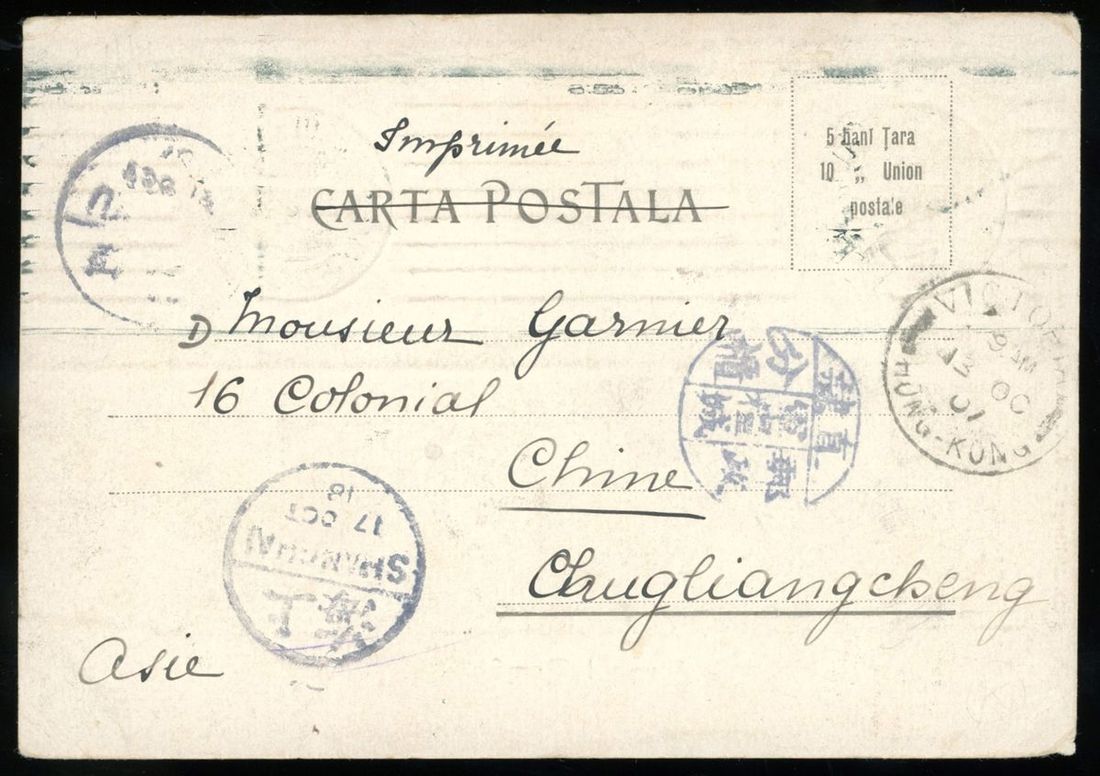 Imprimée
CARTA POSTALA
5 bani Țara
10 „ Union
postale
D Monsieur Garnier
16 Colonial
Chine
Chugliangcheng
Asie
VICTOR
9 AM
13 OC
01
HONG-KONG
18
17 OCT
SHANGHAI
上海